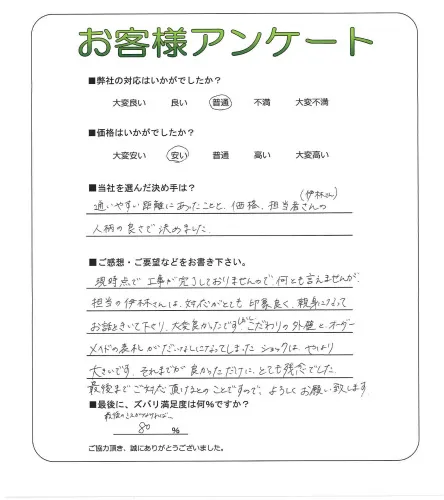 お客様アンケート
■弊社の対応はいかがでしたか？
大変良い 良い 普通 不満 大変不満
■価格はいかがでしたか？
大変安い 安い 普通 高い 大変高い
■当社を選んだ決め手は？
(伊林さん)
通いやすい距離にあったことと、価格、担当者さんの
人柄の良さで決めました
■ご感想・ご要望などをお書き下さい。
現時点で工事が完了しておりませんので何とも言えませんが、
担当の伊林さんは、対応がとても印象良く、親身になって
お話をきいて下さり、大変良かったです しかし こだわりの外壁と、オーダー
メイドの表札がだいなしになってしまったショックは、やはり
大きいです。それまでが良かっただけに、とても残念でした。
最後までご対応頂けるとのことですので、よろしくお願い致します
■最後に、ズバリ満足度は何％ですか？
80 ％
ご協力頂き、誠にありがとうございました。